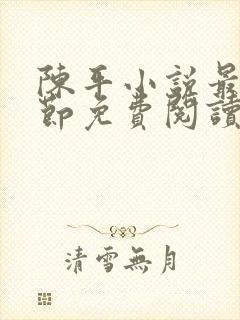 陳平小說最
節免費閱讀
清雪無月